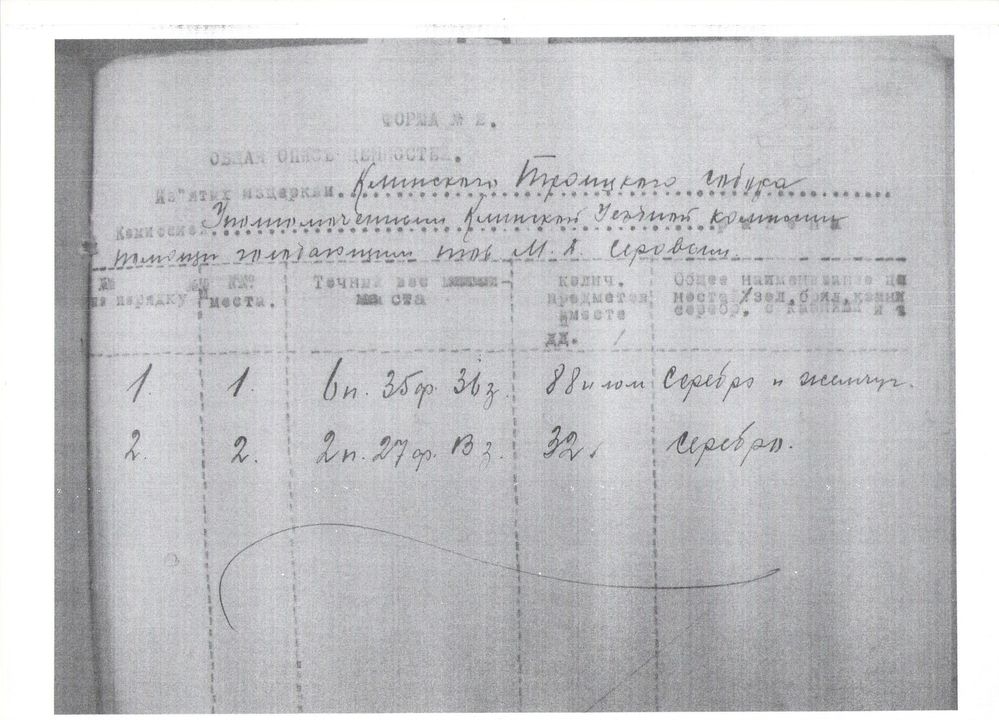 ФОРМА № 2.
ОБЩАЯ ОПИСЬ ЦЕННОСТЕЙ.
Из"ятых изцеркви Клинского Троицкого собора
Комиссией Уполномоченным Клинской Уездной комиссии
помощи голодающим тов М. А. Серовым.
№№ по порядку №№ места. Точный вес места колич. предметов вместе дд. Общее наименование це
места /зол, брил, камни
серебр, с камнями и т
1. 1. 6 п. 35 ф. 36 з. 88 и лом Серебро и жемчуг.
2. 2. 2 п. 27 ф. 13 з. 32 серебро.